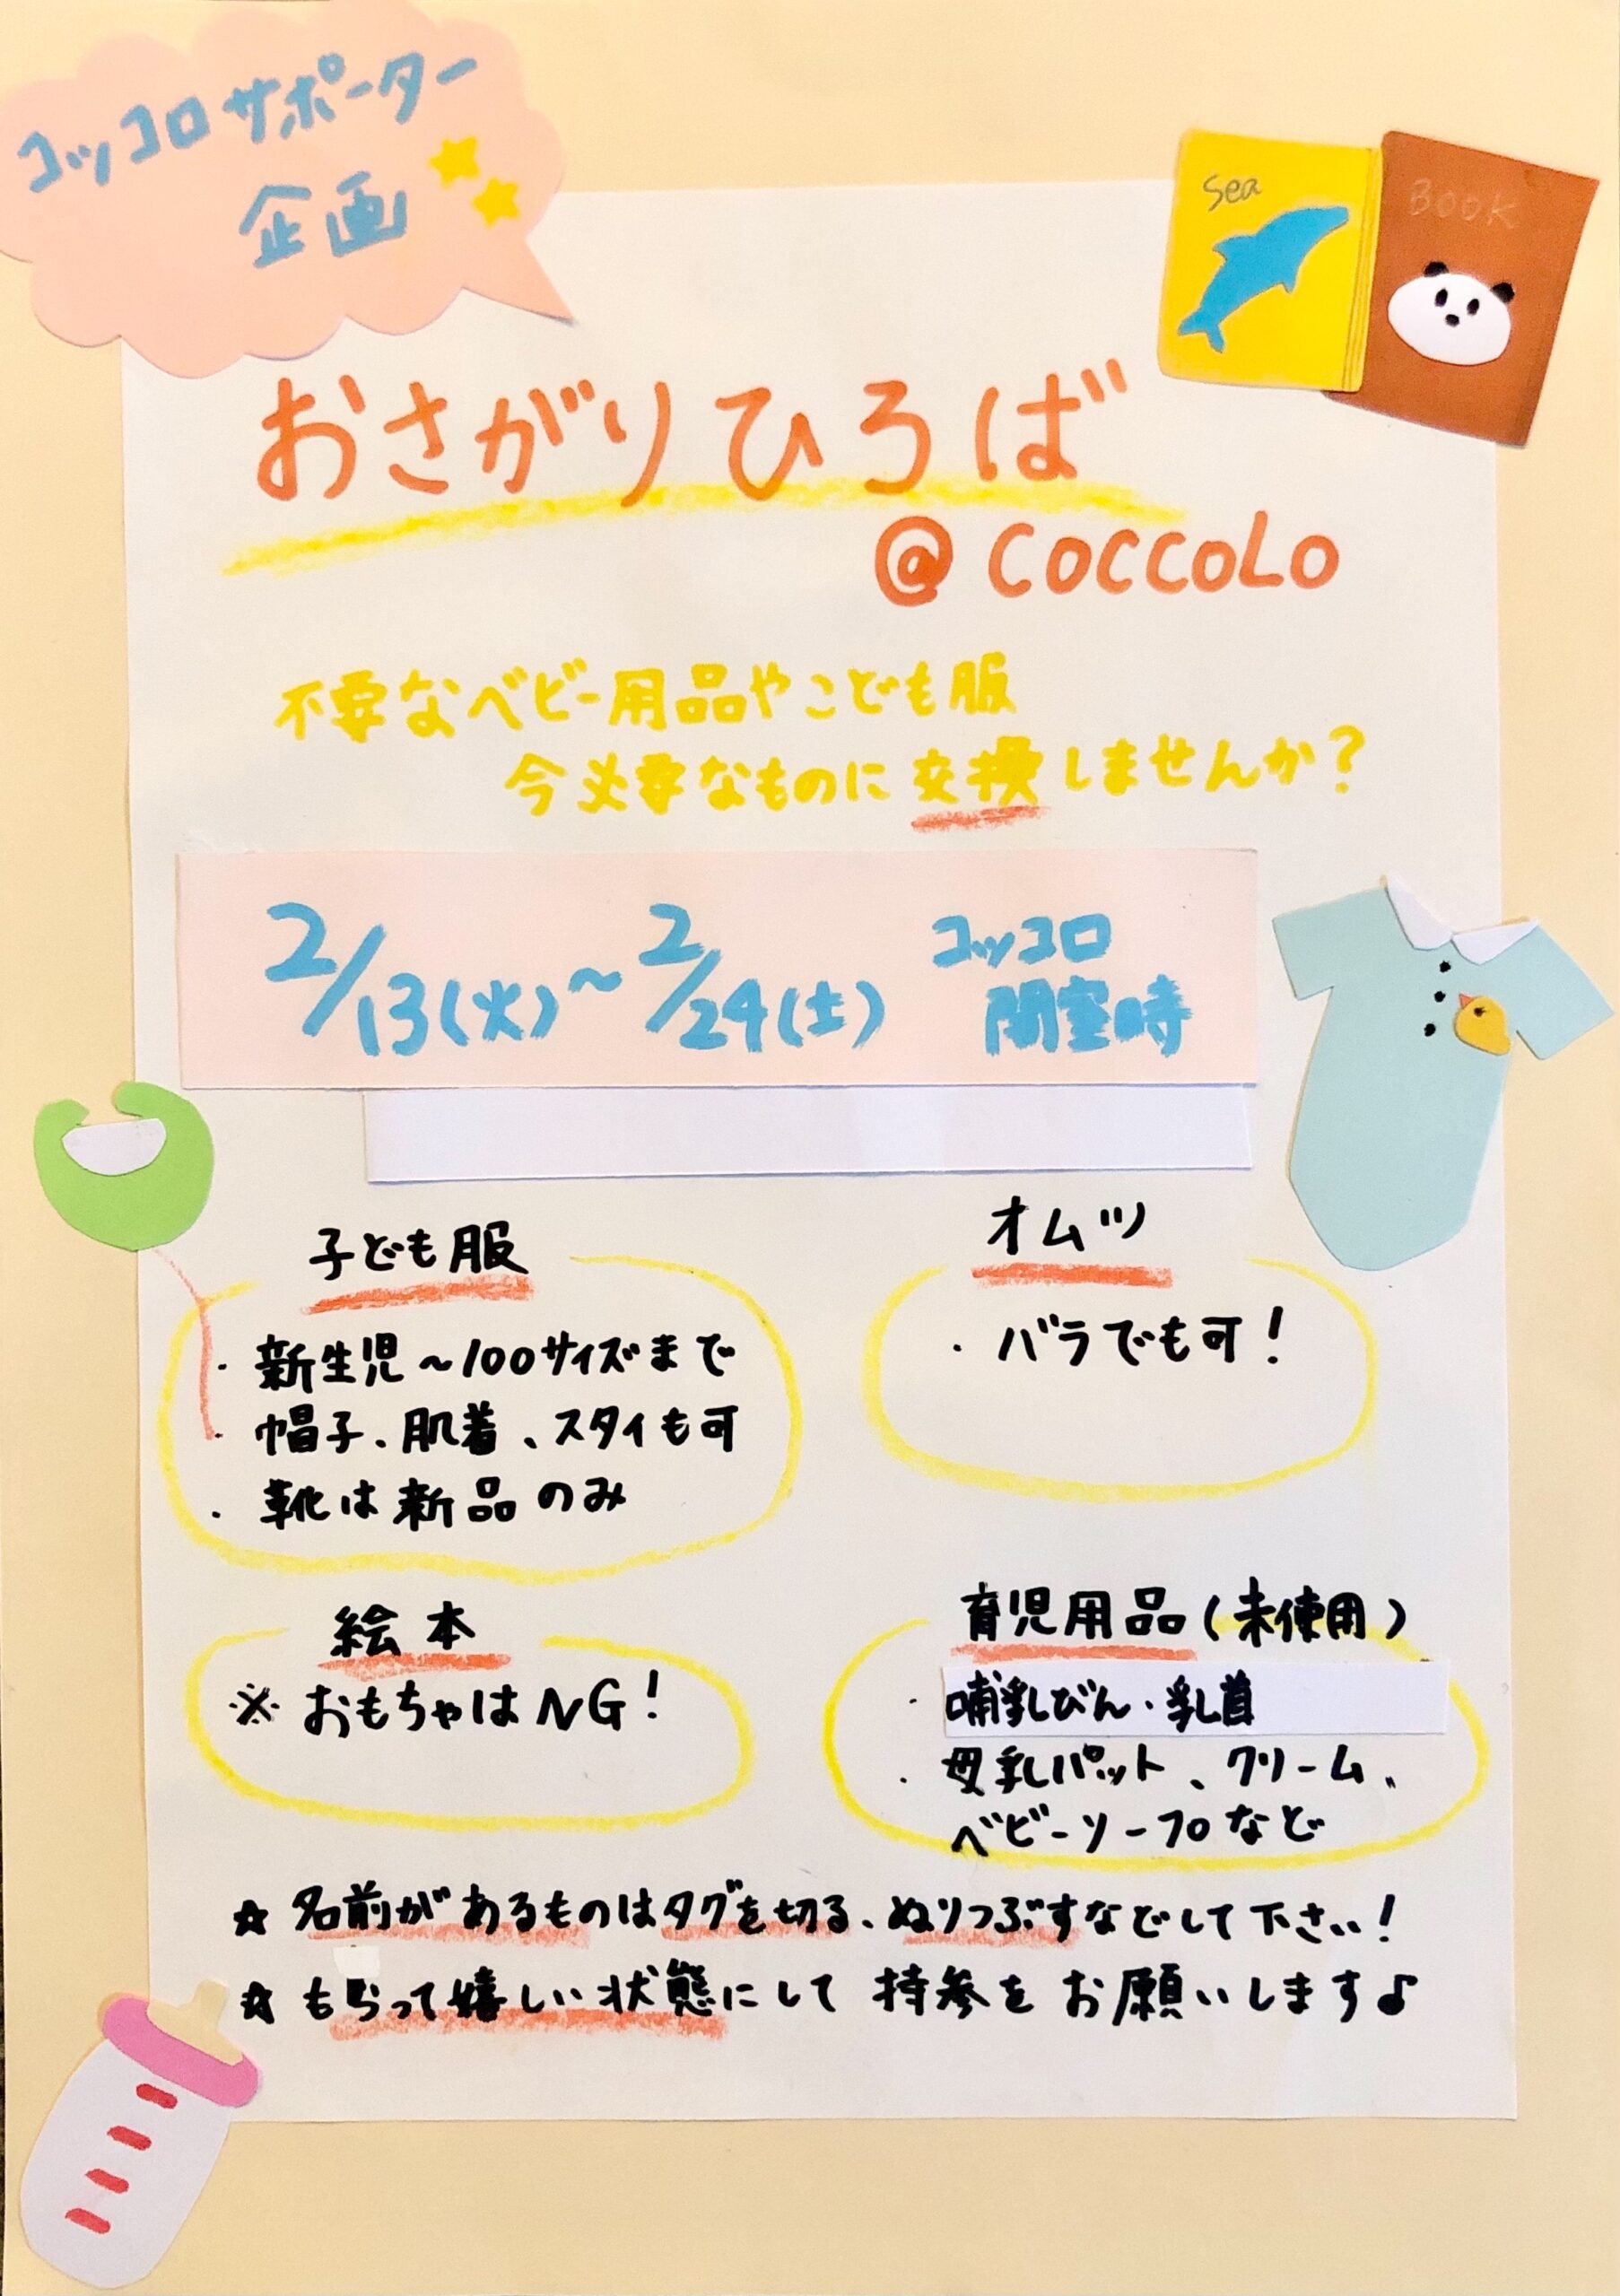 コッコロサポーター
企画
Sea
BOOK
おさがりひろば
@COCCOLO
不要なベビー用品やこども服
今必要なものに交換しませんか?
2/13(火)~2/24(土) コッコロ
開室時
子ども服
・新生児~100サイズまで
・帽子、肌着、スタイも可
・靴は新品のみ
オムツ
・バラでも可!
絵本
※おもちゃはNG!
育児用品(未使用)
・哺乳びん・乳首
・母乳パット、クリーム、
ベビーソープなど
☆名前があるものはタグを切る、ぬりつぶすなどして下さい!
☆もらって嬉しい状態にして持参をお願いします♪